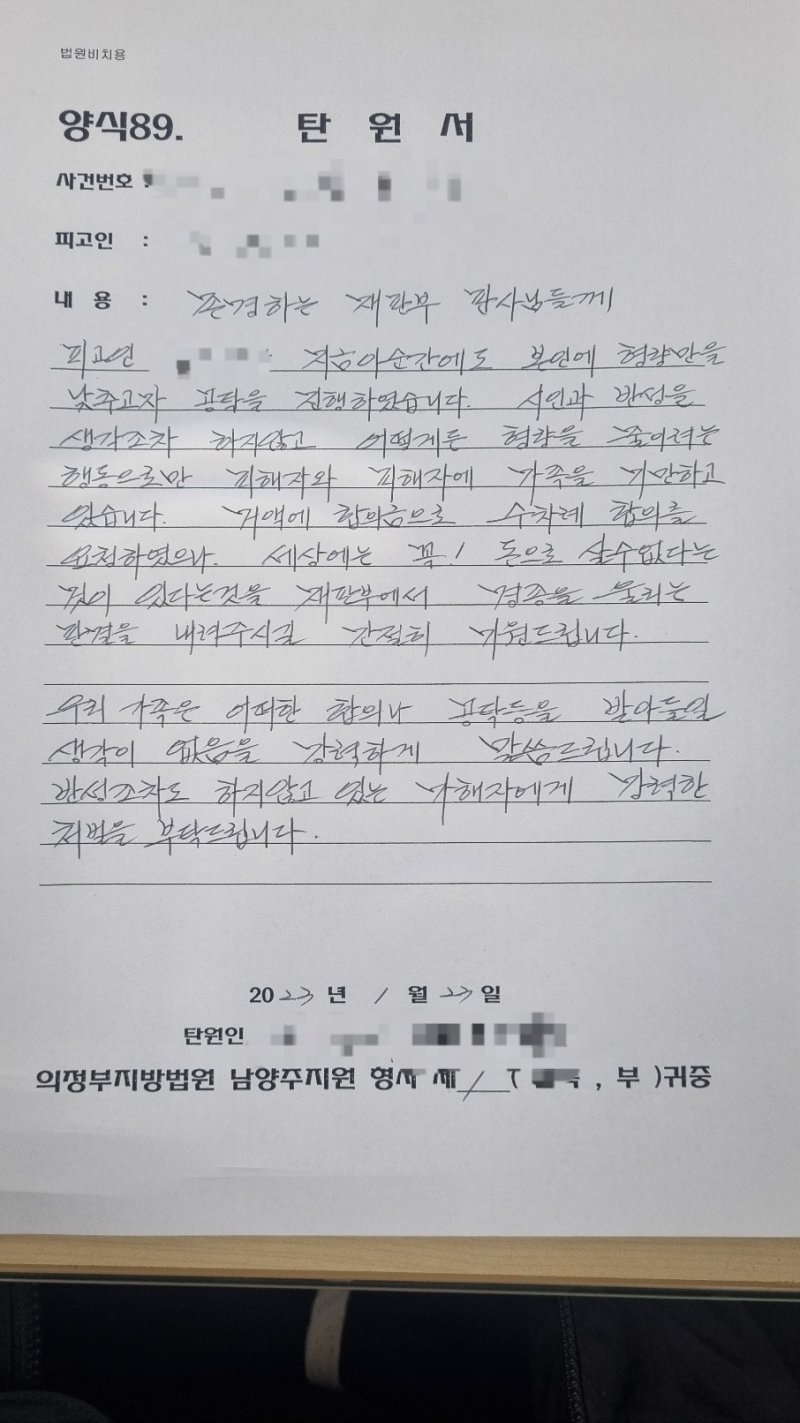 법원비치용
양식89. 탄 원 서
사건번호 :
피고인 :
내 용 : 존경하는 재판부 판사님들께
피고인 지금이순간에도 본인에 형량만을
낮추고자 공탁을 진행하였습니다. 시인과 반성을
생각조차 하지않고 어떻게든 형량을 줄이려는
행동으로만 피해자와 피해자에 가족을 기만하고
있습니다. 거액에 합의금으로 수차례 합의를
요청하였으나. 세상에는 꼭! 돈으로 살수없다는
것이 있다는것을 재판부에서 경종을 울리는
판결을 내려주시길 간절히 기원드립니다.
우리 가족은 어떠한 합의나 공탁등을 받아들일
생각이 없음을 강력하게 말씀드립니다.
반성조차도 하지않고 있는 가해자에게 강력한
처벌을 부탁드립니다.
2023년 1월 23일
탄원인
의정부지방법원 남양주지원 형사 제 1 ( , 부 )귀중